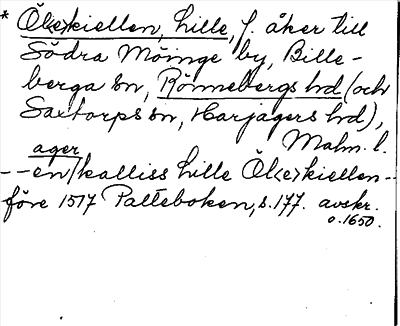 * Öl<e>kiellen, lille, f. åker till
Södra Möinge by, Bille-
berga sn, Rönnebergs hd (och
Saxtorps sn, Harjagers hd),
Malm. l.
ager
-- en/kalliss lille Öl<e>kiellen --
före 1517 Palteboken, s. 177. avskr.
o. 1650.